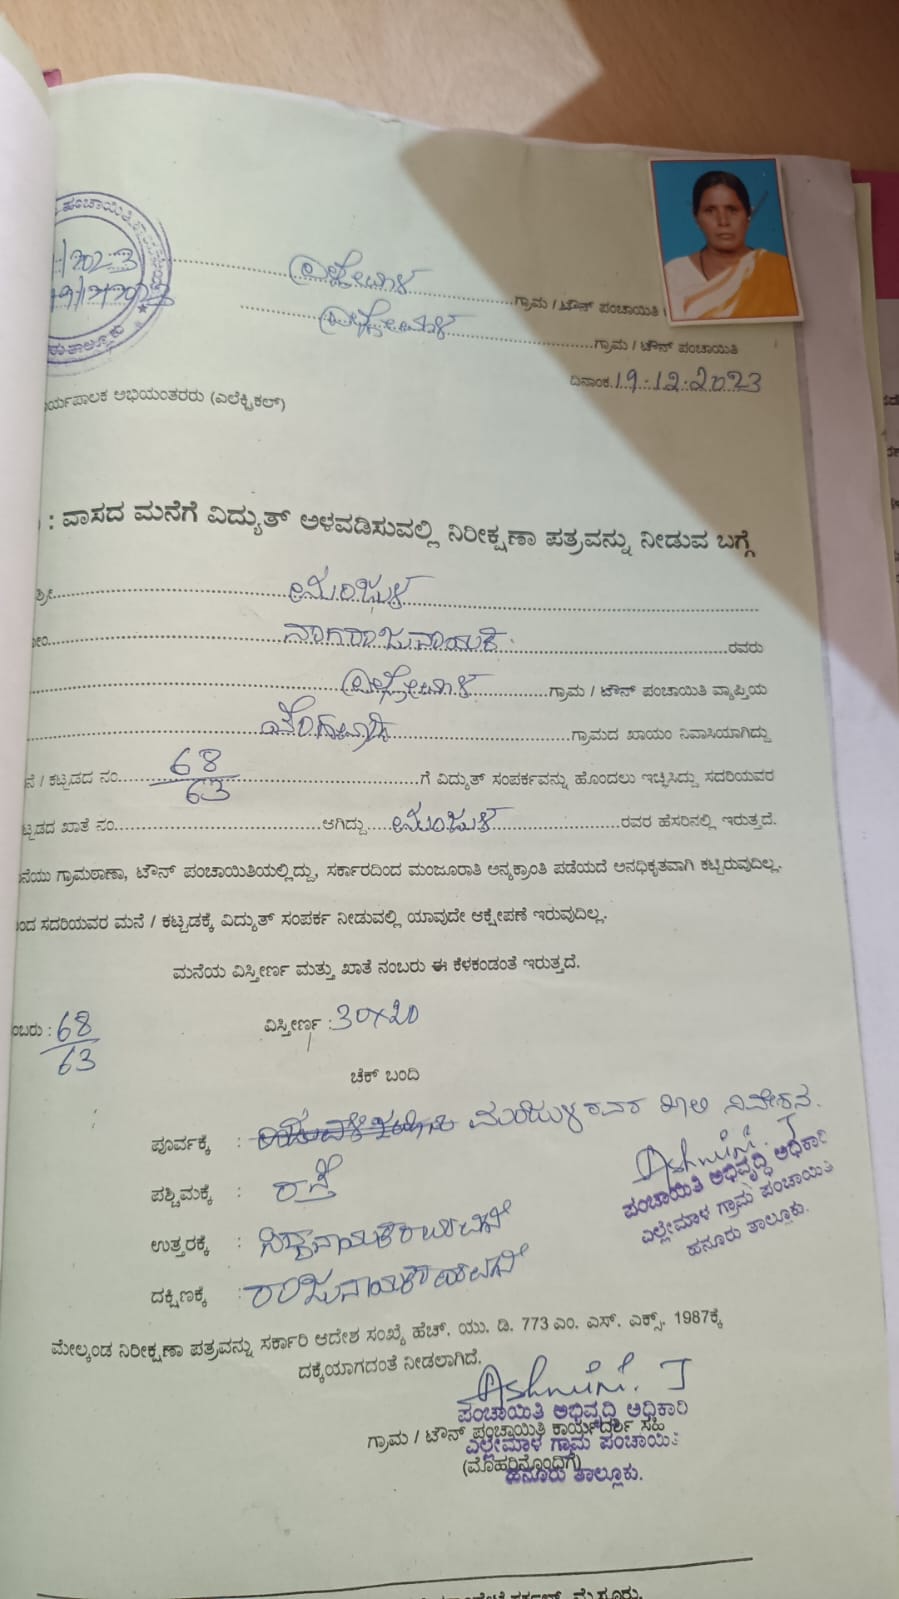 ಪಂಚಾಯಿತಿ
19/12/2023
ಎಲ್ಲೇಮಾಳ ಗ್ರಾಮ / ಟೌನ್ ಪಂಚಾಯಿತಿ
ಎಲ್ಲೇಮಾಳ ಗ್ರಾಮ / ಟೌನ್ ಪಂಚಾಯಿತಿ
ದಿನಾಂಕ 19-12-2023
ಅಭಿಯಂತರರು (ಎಲೆಕ್ಟ್ರಿಕಲ್)
: ವಾಸದ ಮನೆಗೆ ವಿದ್ಯುತ್ ಅಳವಡಿಸುವಲ್ಲಿ ನಿರೀಕ್ಷಣಾ ಪತ್ರವನ್ನು ನೀಡುವ ಬಗ್ಗೆ
ಮಂಜುಳ
ನಾಗರಾಜುನಾಯಕ ರವರು
ಎಲ್ಲೇಮಾಳ ಗ್ರಾಮ / ಟೌನ್ ಪಂಚಾಯಿತಿ ವ್ಯಾಪ್ತಿಯ
ಗ್ರಾಮದ ಖಾಯಂ ನಿವಾಸಿಯಾಗಿದ್ದು
/ ಕಟ್ಟಡದ ನಂ. 68/63 ಗೆ ವಿದ್ಯುತ್ ಸಂಪರ್ಕವನ್ನು ಹೊಂದಲು ಇಚ್ಛಿಸಿದ್ದು ಸದರಿಯವರ
ಖಾತೆ ನಂ. ಆಗಿದ್ದು ಮಂಜುಳ ರವರ ಹೆಸರಿನಲ್ಲಿ ಇರುತ್ತದೆ.
ಗ್ರಾಮಠಾಣಾ, ಟೌನ್ ಪಂಚಾಯಿತಿಯಲ್ಲಿದ್ದು, ಸರ್ಕಾರದಿಂದ ಮಂಜೂರಾತಿ ಅನ್ಯಕ್ರಾಂತಿ ಪಡೆಯದೆ ಅನಧಿಕೃತವಾಗಿ ಕಟ್ಟಿರುವುದಿಲ್ಲ.
ಸದರಿಯವರ ಮನೆ / ಕಟ್ಟಡಕ್ಕೆ ವಿದ್ಯುತ್ ಸಂಪರ್ಕ ನೀಡುವಲ್ಲಿ ಯಾವುದೇ ಆಕ್ಷೇಪಣೆ ಇರುವುದಿಲ್ಲ.
ಮನೆಯ ವಿಸ್ತೀರ್ಣ ಮತ್ತು ಖಾತೆ ನಂಬರು ಈ ಕೆಳಕಂಡಂತೆ ಇರುತ್ತದೆ.
68/63 ವಿಸ್ತೀರ್ಣ : 30x20
ಚೆಕ್ ಬಂದಿ
ಪೂರ್ವಕ್ಕೆ : ಮಂಜುಳ ರವರ ಖಾಲಿ ನಿವೇಶನ.
Ashwini. J
ಪಂಚಾಯಿತಿ ಅಭಿವೃದ್ಧಿ ಅಧಿಕಾರಿ
ಎಲ್ಲೇಮಾಳ ಗ್ರಾಮ ಪಂಚಾಯಿತಿ
ಹನೂರು ತಾಲ್ಲೂಕು.
ಪಶ್ಚಿಮಕ್ಕೆ : ರಸ್ತೆ
ಉತ್ತರಕ್ಕೆ :
ದಕ್ಷಿಣಕ್ಕೆ :
ಮೇಲ್ಕಂಡ ನಿರೀಕ್ಷಣಾ ಪತ್ರವನ್ನು ಸರ್ಕಾರಿ ಆದೇಶ ಸಂಖ್ಯೆ ಹೆಚ್. ಯು. ಡಿ. 773 ಎಂ. ಎಸ್. ಎಕ್ಸ್. 1987ಕ್ಕೆ
ದಕ್ಕೆಯಾಗದಂತೆ ನೀಡಲಾಗಿದೆ.
Ashwini. J
ಪಂಚಾಯಿತಿ ಅಭಿವೃದ್ಧಿ ಅಧಿಕಾರಿ
ಗ್ರಾಮ / ಟೌನ್ ಪಂಚಾಯಿತಿ ಕಾರ್ಯದರ್ಶಿ ಸಹಿ
ಎಲ್ಲೇಮಾಳ ಗ್ರಾಮ ಪಂಚಾಯಿತಿ
(ಮೊಹರಿನೊಂದಿಗೆ)
ಹನೂರು ತಾಲ್ಲೂಕು.
ಮೈಸೂರು.